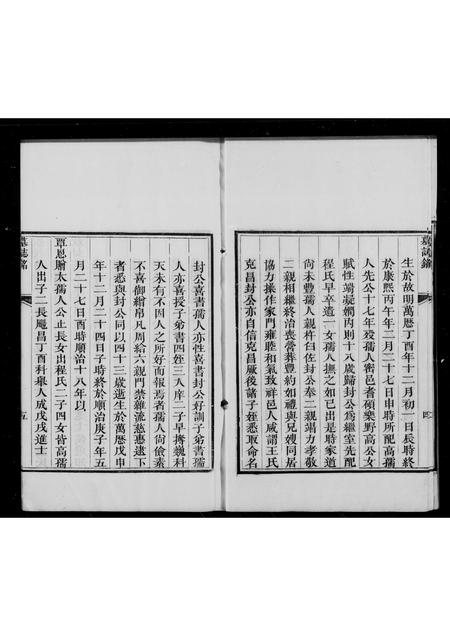 墓誌銘
四
生於故明萬曆丁酉年十二月初一日辰時終
於康熙丙午年二月二十七日申時所配高孺
人先公十七年歿孺人密邑耆碩樂野高公女
賦性端凝嫻內則十八歲歸封公為繼室先配
程氏早卒遺一女孺人撫之如己出是時家道
尚未豐孺人親杵臼佐封公奉二親竭力孝敬
二親相繼終治喪營葬豐約如禮與兄嫂同居
協力操作家門雍睦和氣致祥邑人咸謂王氏
克昌封公亦自信克昌厥後諸子姪悉取命名
封公喜書孺人亦性喜書封公好誨子弟書孺
人亦喜授子弟書四姪三入庠二子早擣巍科
天未有不因人之所好而報焉者孺人尚儉素
不喜御紈帛凡周給六親門禁雜流慈惠逮下
者悉與封公同以四十三歲逝生於萬曆戊申
年十二月二十四日子時終於順治庚子年五
月二十七日酉時順治十八年以
覃恩贈太孺人公止長女出程氏二子四女皆高孺
人出子二長飈昌丁酉科舉人咸戊戌進士
墓誌銘
五